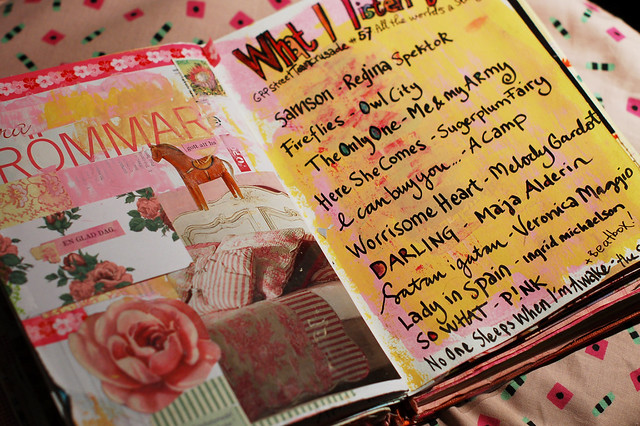 RÖMMAR
EN GLAD DAG
What I listen
GPP Street Team Crusade # 57 All the world's a
Samson - Regina Spektor
Fireflies - Owl City
The Only One - Me & my Army
Here She Comes - Sugarplum Fairy
I can buy you.... A Camp
Worrisome Heart - Melody Gardot
DARLING - Maja Alderin
Satan i gatan - Veronica Maggio
Lady in Spain - ingrid michaelson
So WHAT - P!NK
+ Beatbox!
No One Sleeps When I'm Awake - the